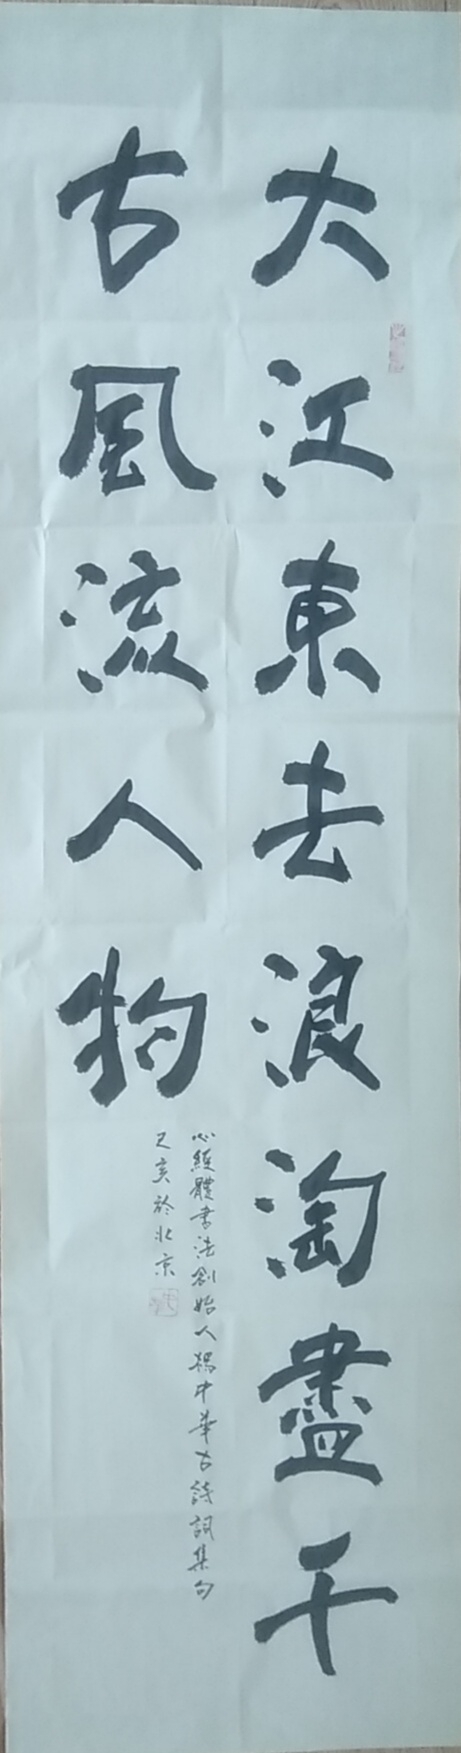 大江東去浪淘盡千
古風流人物
心經體書法創始人楊中華古詩詞集句
己亥於北京